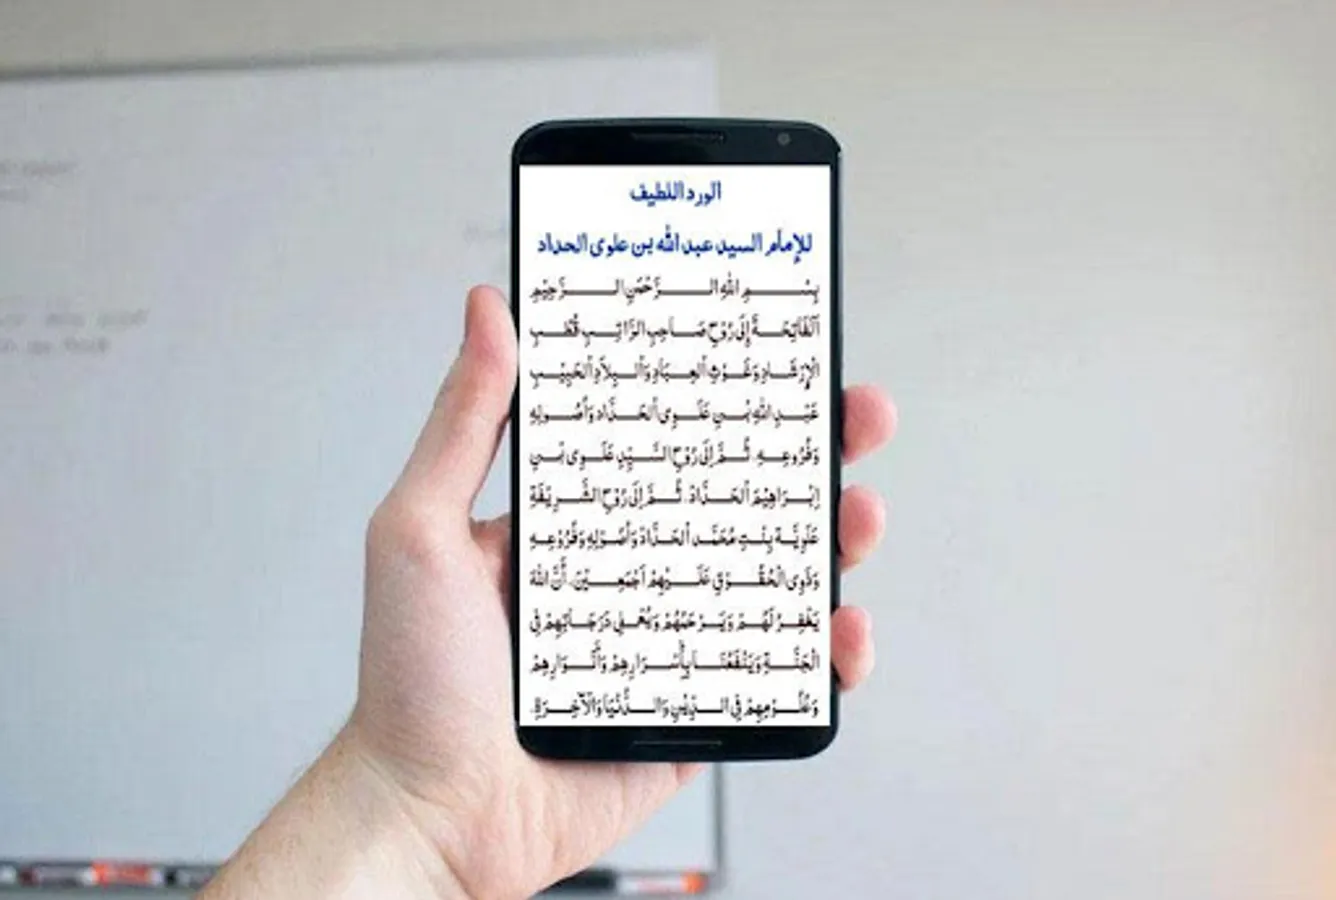 الورد اللطيف
للإمام السيد عبد الله بن علوى الحداد
بِسْمِ اللهِ الرَّحْمٰنِ الرَّحِيْمِ
اَلْفَاتِحَةُ إِلَى رُوْحِ صَاحِبِ الرَّاتِبِ قُطْبِ
الْإِرْشَادِ وَغَوْثِ الْعِبَادِ وَالْبِلَادِ الْحَبِيْبِ
عَبْدِ اللهِ بْنِ عَلَوِى الْحَدَّاد وَأُصُوْلِهِ
وَفُرُوعِهِ ثُمَّ إِلَى رُوْحِ السَّيِّدِ عَلَوِى بْنِ
إِبْرَاهِيْمَ الْحَدَّادْ ثُمَّ إِلَى رُوْحِ الشَّرِيْفَةِ
عَلَوِيَّة بِنْتِ مُحَمَّد الْحَدَّادْ وَأُصُوْلِهِ وَفُرُوْعِهِ
وَذَوِى الْحُقُوْقِ عَلَيْهِمْ أَجْمَعِيْنَ. أَنَّ اللهَ
يَغْفِرُ لَهُمْ وَيَرْحَمُهُمْ وَيُعْلِي دَرَجَاتِهِمْ فِي
الْجَنَّةِ وَيَنْفَعُنَا بِأَسْرَارِهِمْ وَأَنْوَارِهِمْ
وَعُلُوْمِهِمْ فِي الدِّيْنِ وَالدُّنْيَا وَالْآخِرَةِ.